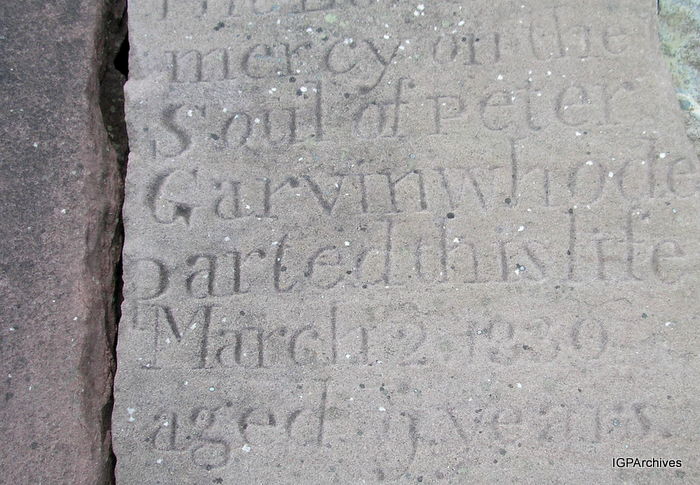 mercy on the
Soul of Peter
Garvin who de
parted this life
March 2. 1830
aged years
IGPArchives